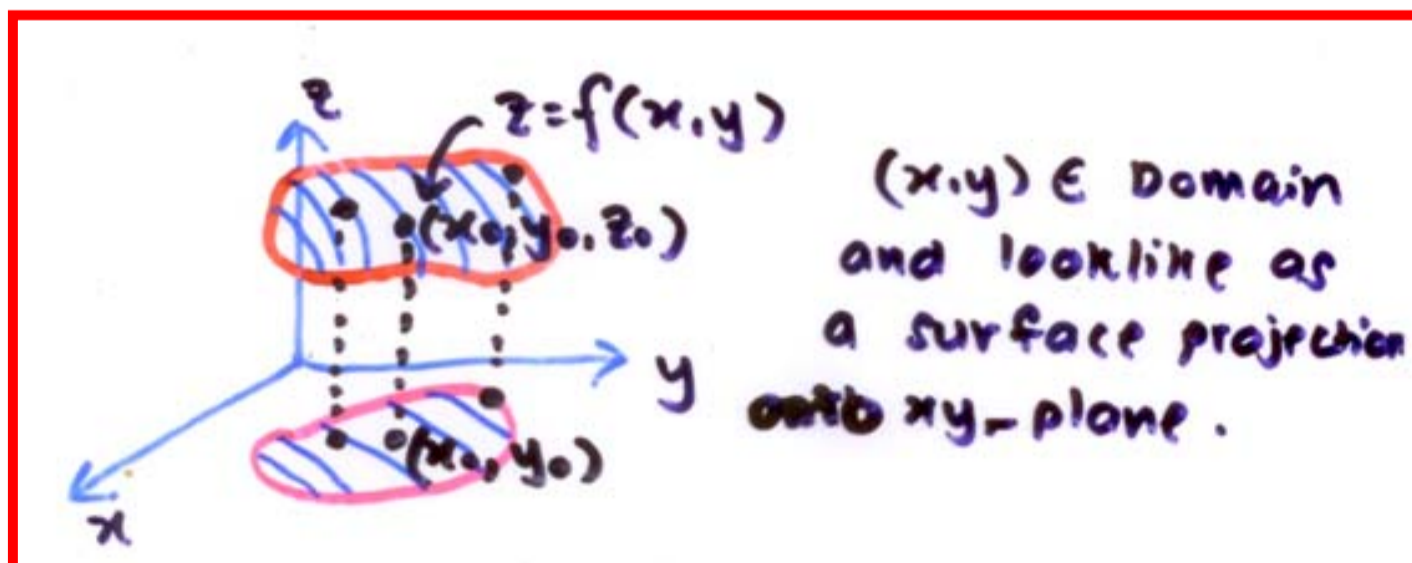 z
z=f(x,y)
(x₀,y₀,z₀)
y
(x₀,y₀)
x
(x,y) ∈ Domain
and looklike as
a surface projection
onto xy-plane.